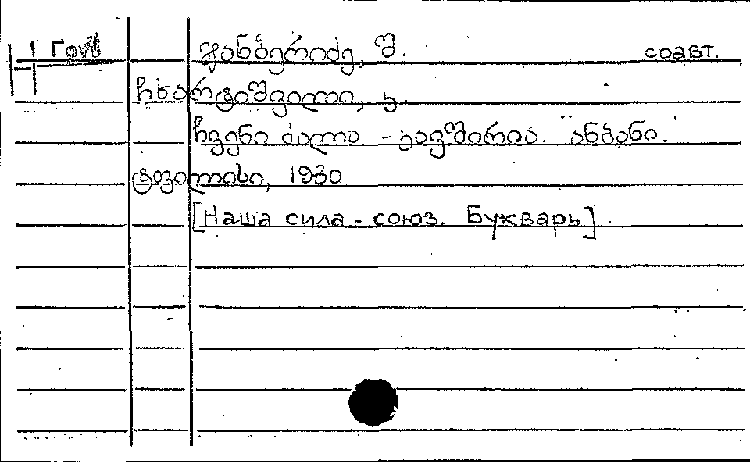 ჯანბერიძე, შ. соавт.
ჩხარტიშვილი, ა.
ჩვენი ძალა - კავშირია. ანბანი.
ტფილისი, 1930
[Наша сила - союз. Букварь].